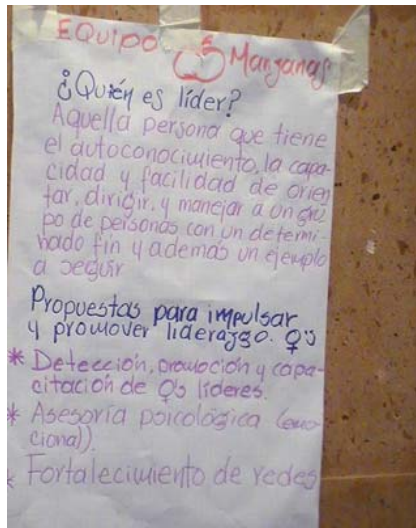 EQUIPO Manzanas
¿Quién es líder?
Aquella persona que tiene
el autoconocimiento, la capa-
cidad y facilidad de orien
tar, dirigir, y manejar a un gru
po de personas con un determi-
nado fin y además un ejemplo
a seguir
Propuestas para impulsar
y promover liderazgo. ♀s
* Detección, promoción y capa-
citación de ♀s líderes.
* Asesoría psicológica (emo-
cional)).
* Fortalecimiento de redes